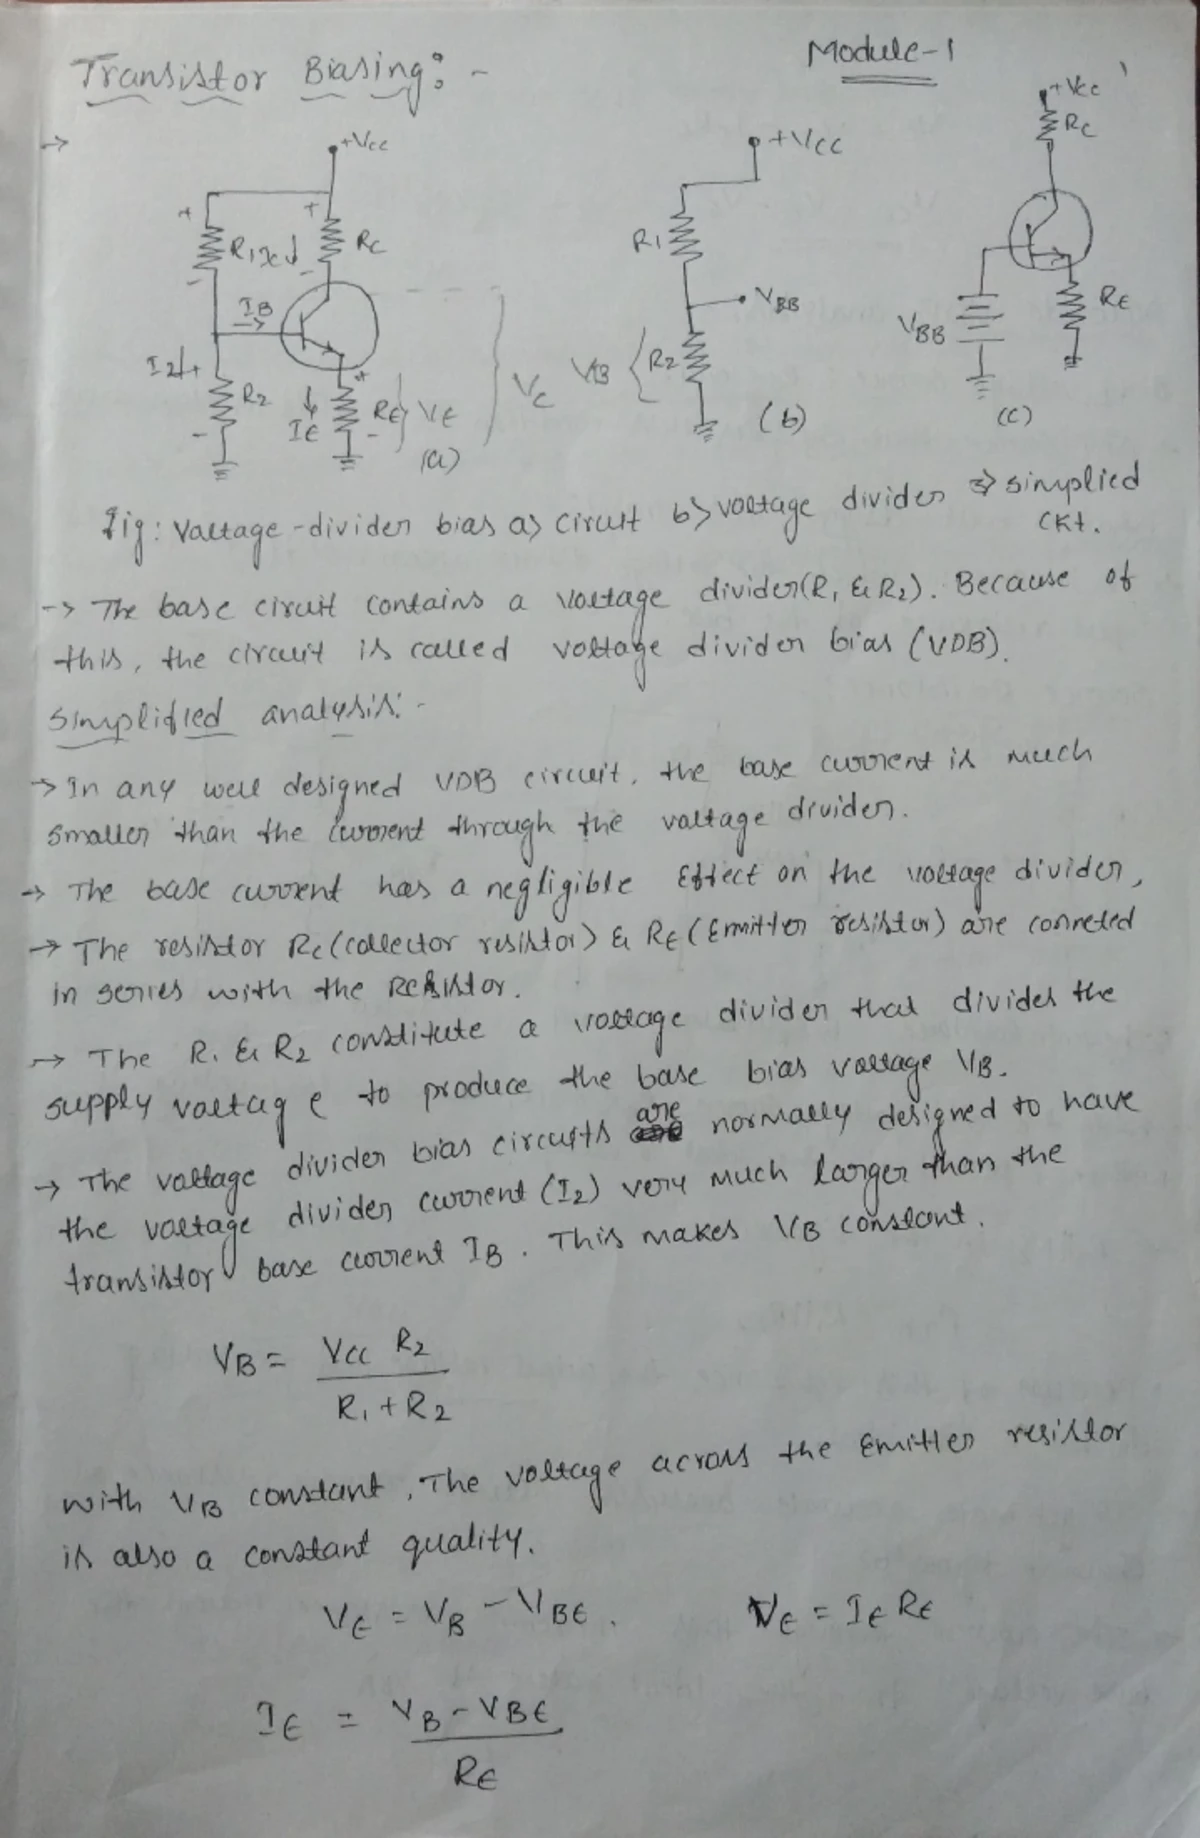 Module-1
Transistor Biasing: -
+Vcc
R1
Ic↓
Rc
IB
I2↓
R2
IE
RE
VE
Vc
(a)
+VCC
R1
VBB
VB
R2
(b)
+Vcc
Rc
VBB
RE
(c)
Fig: Valtage-divider bias a> Circuit b> voltage divider c> simplied
ckt.
-> The base ciruit contains a voltage divider(R1 & R2). Because of
this, the circuit is called voltage divider bias (VDB).
Simplified analysis: -
-> In any well designed VDB circuit, the base current is much
smaller than the current through the valtage divider.
-> The base current has a negligible Effect on the voltage divider,
-> The resistor Rc (collector resistor) & RE (Emitter resistor) are conneted
in series with the Resistor.
-> The R1 & R2 constitute a voltage divider that divides the
supply valtag e to produce the base bias valtage VB.
-> The valtage divider bias circuits are normally designed to have
the valtage divider current (I2) very much larger than the
transistor base current IB. This makes VB constant.
VB = Vcc R2
R1 + R2
with VB constant, The voltage across the Emitter resistor
is also a constant quality.
VE = VB - VBE. VE = IE RE
IE = VB - VBE
RE